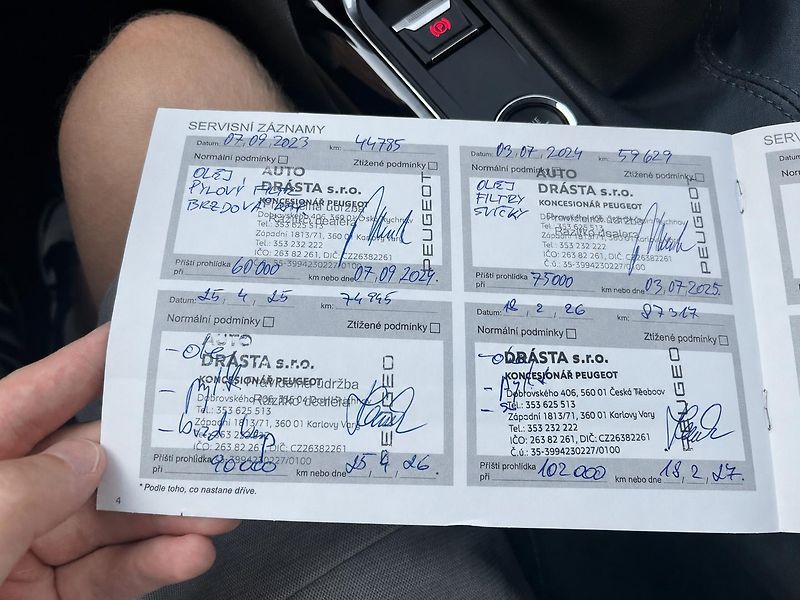 SERVISNÍ ZÁZNAMY
Datum: 07.09.2023 km: 44785
Normální podmínky
Ztížené podmínky
OLEJ
PYLOVÝ
AUTO
DRÁSTA s.r.o.
KONCESIONÁŘ PEUGEOT
Pravidelná údržba
Razítko dealera
Tel.: 353 625 513
Západní 1813/71, 360 01 Karlovy Vary
Tel.: 353 232 222
IČO: 263 82 261, DIČ: CZ26382261
35-3994230227/0100
PEUGEOT
Příští prohlídka
při 60000 km nebo dne 07.09.2024.
Datum: 03.07.2024 km: 59629
Normální podmínky
Ztížené podmínky
OLEJ
FILTRY
SVÍČKY
AUTO
DRÁSTA s.r.o.
KONCESIONÁŘ PEUGEOT
Razítko dealera
Tel.: 353 625 513
Západní 1813/71, 360 01 Karlovy Vary
Tel.: 353 232 222
IČO: 263 82 261, DIČ: CZ26382261
Č.ú.: 35-3994230227/0100
PEUGEOT
Příští prohlídka
při 75000 km nebo dne 03.07.2025.
Datum: 25.4.25 km: 74945
Normální podmínky
Ztížené podmínky
AUTO
DRÁSTA s.r.o.
KONCESIONÁŘ PEUGEOT
Pravidelná údržba
Razítko dealera
Tel.: 353 625 513
Západní 1813/71, 360 01 Karlovy Vary
IČO: 263 82 261, DIČ: CZ26382261
Příští prohlídka
při 90000 km nebo dne 25.4.26.
Datum: 18.2.26 km: 87317
Normální podmínky
Ztížené podmínky
DRÁSTA s.r.o.
KONCESIONÁŘ PEUGEOT
Dobrovského 406, 560 01 Česká
Tel.: 353 625 513
Západní 1813/71, 360 01 Karlovy Vary
Tel.: 353 232 222
IČO: 263 82 261, DIČ: CZ26382261
Č.ú.: 35-3994230227/0100
PEUGEO
Příští prohlídka
při 102000 km nebo dne 18.2.27.
* Podle toho, co nastane dříve.
4
SERV